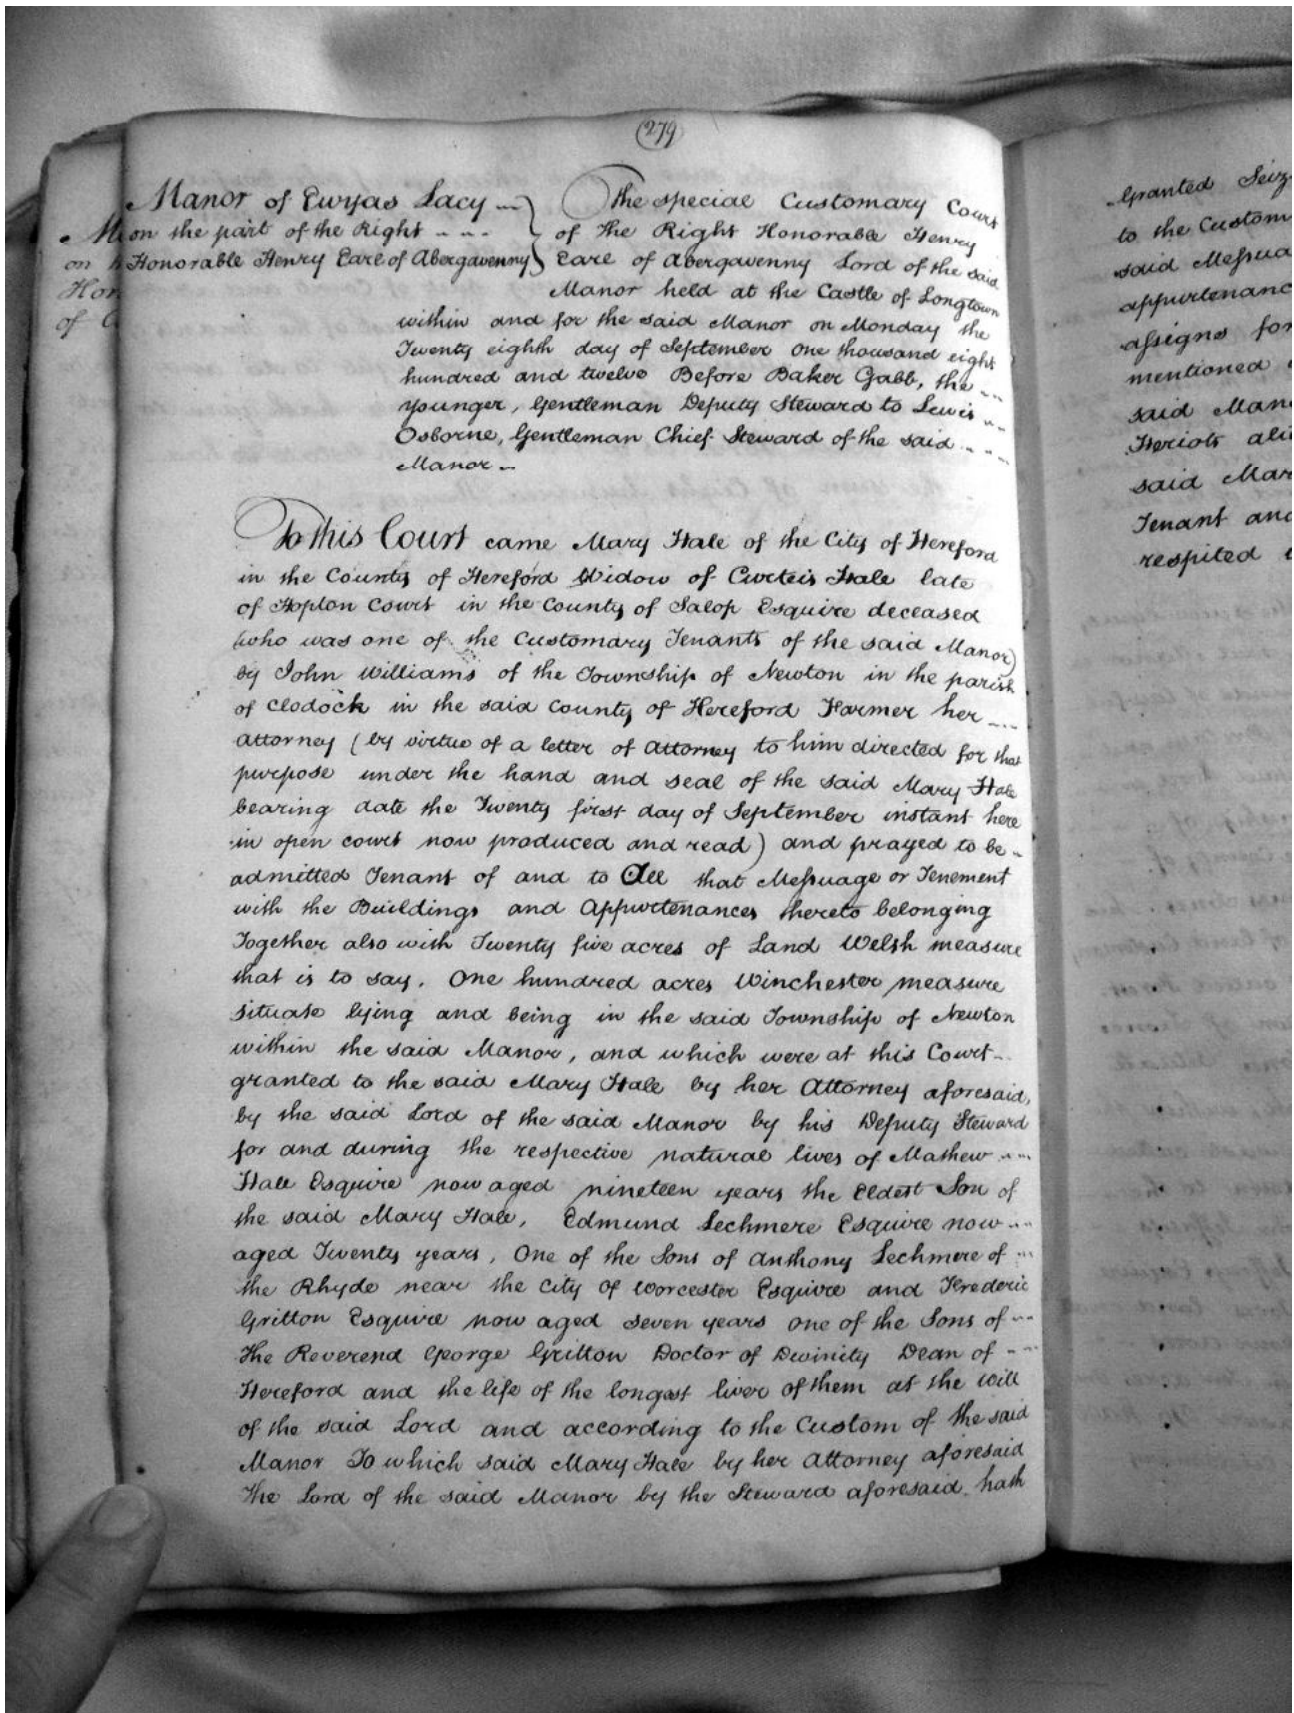 (279)
Manor of Ewyas Lacy
on the part of the Right
Honorable Henry Earl of Abergavenny
The special Customary Court
of the Right Honorable Henry
Earl of Abergavenny Lord of the said
Manor held at the Castle of Longtown
within and for the said Manor on Monday the
Twenty eighth day of September One thousand eight
hundred and twelve Before Baker Gabb, the
younger, Gentleman Deputy Steward to Lewis
Osborne, Gentleman Chief Steward of the said
Manor
To this Court came Mary Hale of the City of Hereford
in the County of Hereford Widow of Curteis Hale late
of Hopton Court in the County of Salop Esquire deceased
(who was one of the Customary Tenants of the said Manor)
by John Williams of the Township of Newton in the parish
of Clodock in the said County of Hereford Farmer her
Attorney (by virtue of a letter of Attorney to him directed for that
purpose under the hand and seal of the said Mary Hale
bearing date the Twenty first day of September instant here
in open court now produced and read) and prayed to be
admitted Tenant of and to All that Messuage or Tenement
with the Buildings and Appurtenances thereto belonging
Together also with Twenty five acres of Land Welsh measure
that is to say, One hundred acres Winchester measure
situate lying and being in the said Township of Newton
within the said Manor, and which were at this Court
granted to the said Mary Hale by her Attorney aforesaid,
by the said Lord of the said Manor by his Deputy Steward
for and during the respective natural lives of Mathew
Hale Esquire now aged nineteen years the Eldest Son of
the said Mary Hale, Edmund Lechmere Esquire now
aged Twenty years, One of the Sons of Anthony Lechmere of
the Rhyde near the City of Worcester Esquire and Frederic
Gritton Esquire now aged seven years one of the Sons of
the Reverend George Gritton Doctor of Divinity Dean of
Hereford and the life of the longest liver of them at the will
of the said Lord and according to the Custom of the said
Manor To which said Mary Hale by her Attorney aforesaid
the Lord of the said Manor by the Steward aforesaid hath
Granted
to the Custom
said Messua
appurtenanc
assigns for
mentioned
said Man
Heriots
said Mar
Tenant and
respited